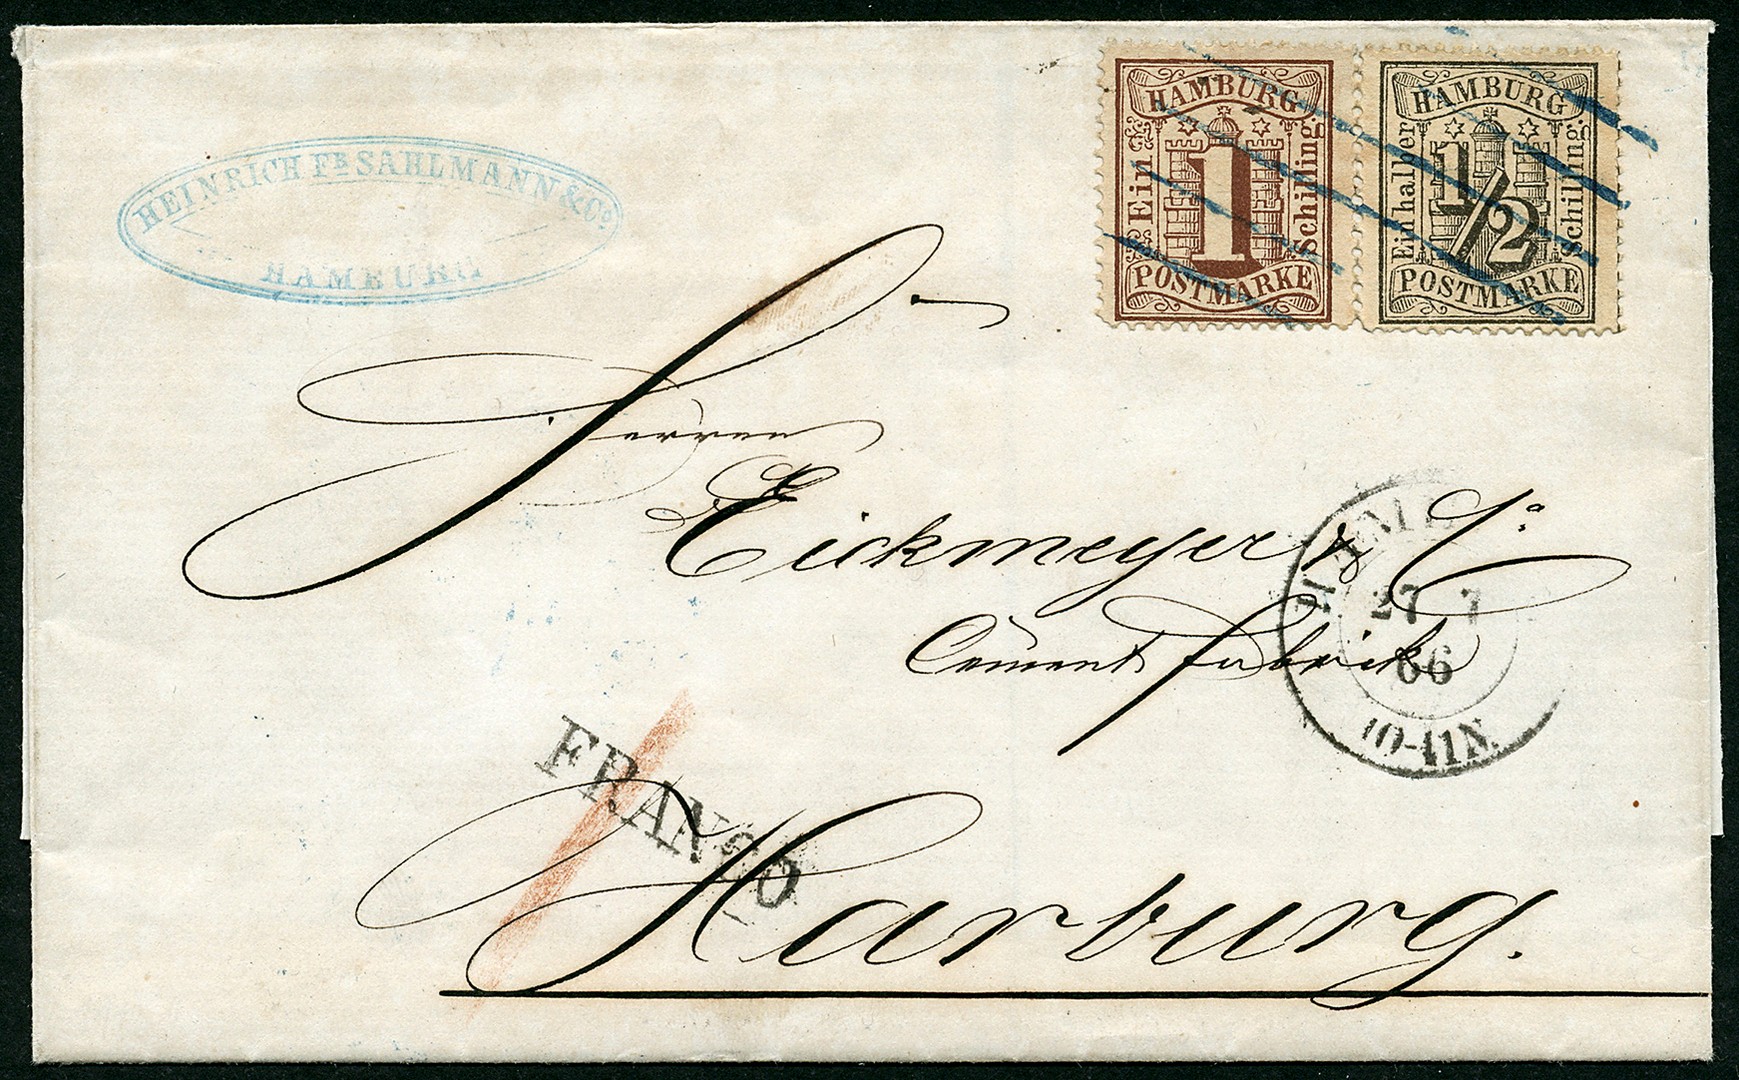 HEINRICH FR SAHLMANN & Co.
HAMBURG
HAMBURG
Ein
1
Schilling.
POSTMARKE
HAMBURG
Ein halber
1/2
Schilling.
POSTMARKE
Herren
Eickmeyer & Co
Cement fabrik
27 7
66
10-11 N.
FRANCO
Harburg.